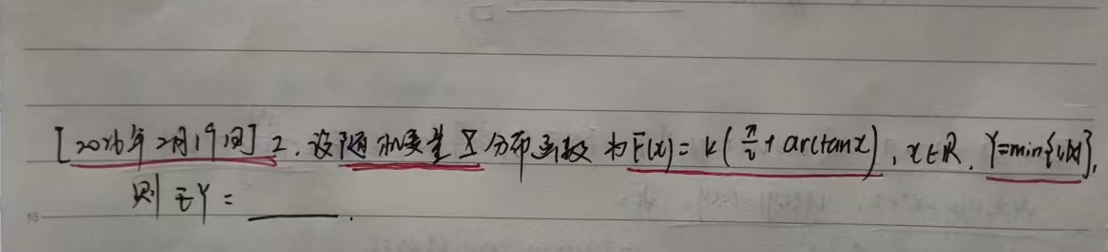 [2026年2月19日] 2. 设随机变量X分布函数为F(x)=k(π/2+arctanx), x∈R. Y=min{1,|x|},
则EY=______.